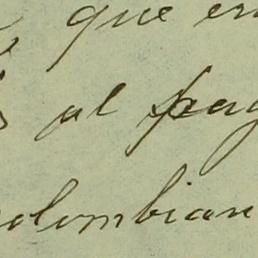 que en
al pag
olombian